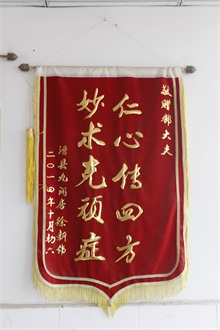 敬赠郭大夫
仁心传四方
妙术克顽症
滑县九间房徐新伟
二〇一四年十月初六